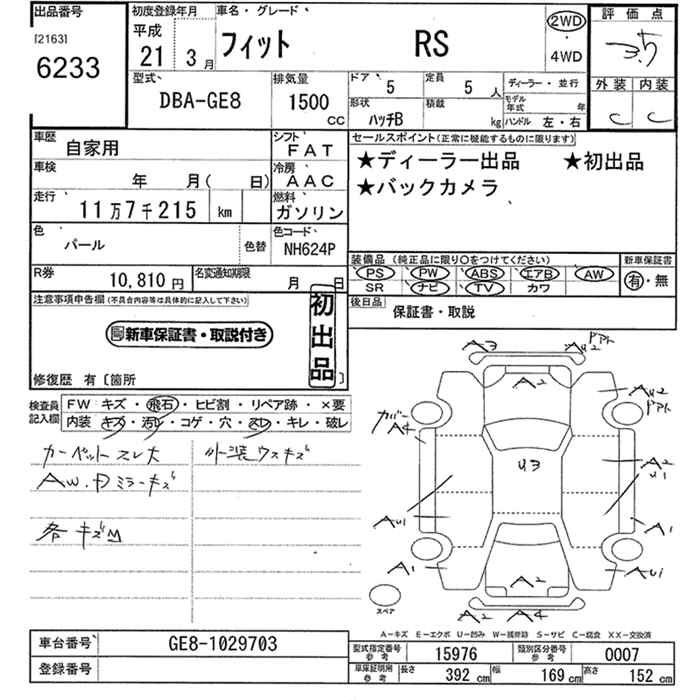 出品番号
[2163]
6233
初度登録年月
平成
21 3 月
車名・グレード
フィット RS
2WD
・
4WD
評価点
3.5
外装 内装
C C
型式
DBA-GE8
排気量
1500
CC
ドア
5
定員
5 人
ディーラー・並行
形状
ハッチB
積載
kg
モデル年式 年
ハンドル 左・右
車歴
自家用
シフト
FAT
車検
年 月( 日)
冷房
AAC
走行
11万7千215 km
燃料
ガソリン
色
パール
色替
色コード
NH624P
R券
10,810 円
名変通知期限
月 日
セールスポイント(正常に機能するものに限ります)
★ディーラー出品 ★初出品
★バックカメラ
装備品(純正品に限り○をつけてください)
PS PW ABS エアB AW
SR ナビ TV カワ
新車保証書
有・無
後日品
保証書・取説
注意事項申告欄(不具合内容等は具体的に記入して下さい)
新車保証書・取説付き
初出品
修復歴 有〔箇所 〕
検査員
記入欄
FW キズ・飛石・ヒビ割・リペア跡・×要
内装 キズ・汚レ・コゲ・穴・スレ・キレ・破レ
カーペットスレ大
外装ウスキズ
AW.Dミラーキズ
各キズM
A3
ドアト
AU2
A2
AU2
ドアト
カバー
A4
U3
A2
U1
AU1
A1
A1
AU1
A2
A2 A4
スペア
A-キズ E-エクボ U-凹み W-補修跡 S-サビ C-腐食 XX-交換済
車台番号
GE8-1029703
登録番号
型式指定番号
参考
15976
類別区分番号
参考
0007
車庫証明用
参考
長さ
392 cm
幅
169 cm
高さ
152 cm